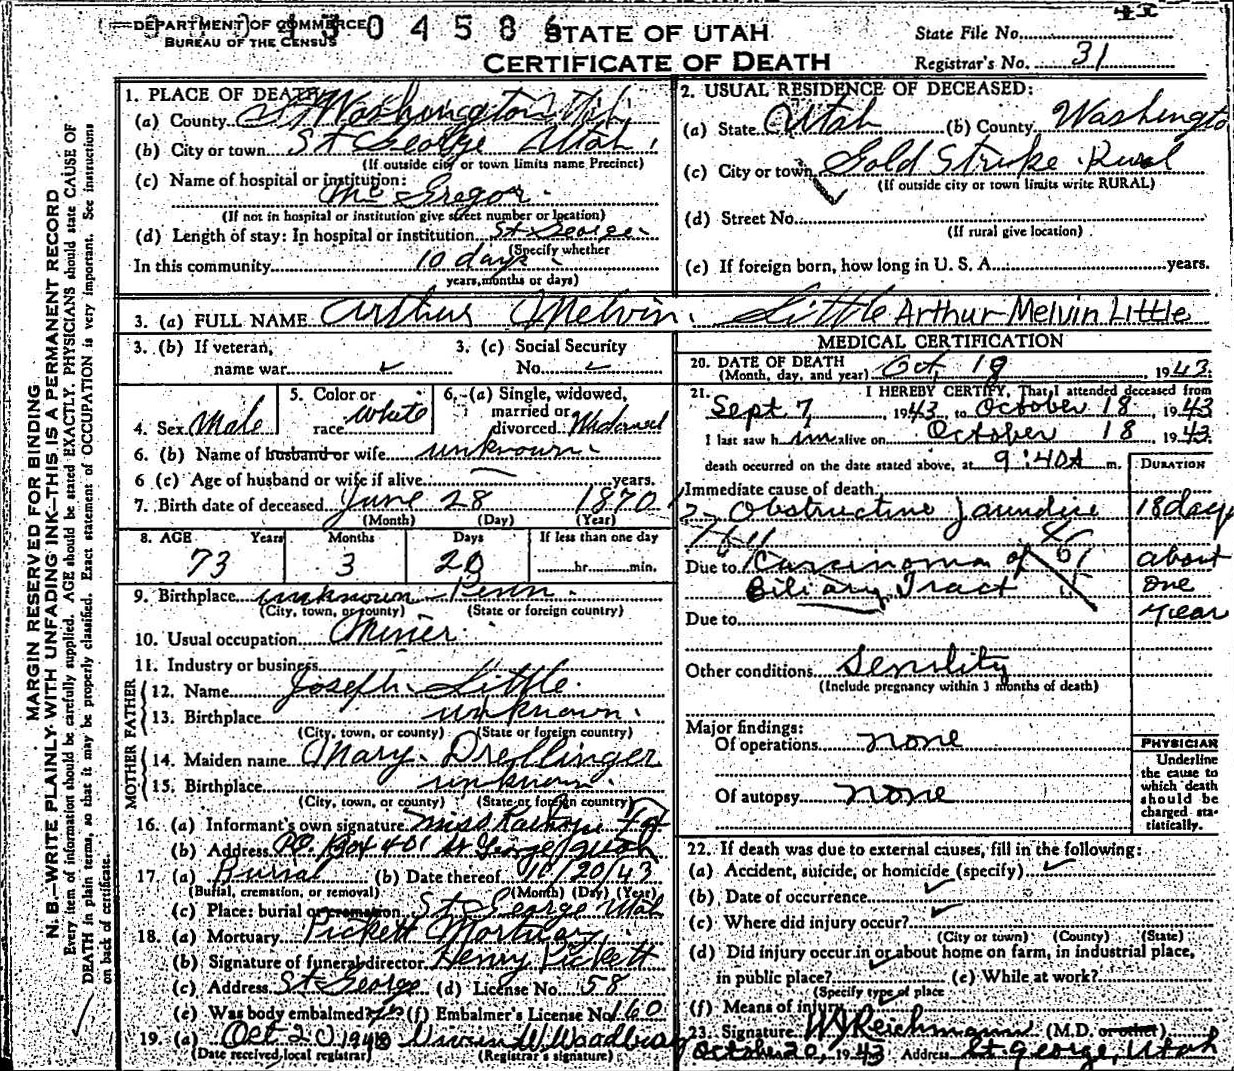 DEPARTMENT OF COMMERCE
BUREAU OF THE CENSUS
304586
STATE OF UTAH
CERTIFICATE OF DEATH
State File No.
Registrar's No. 31
MARGIN RESERVED FOR BINDING
N. B.—WRITE PLAINLY—WITH UNFADING INK—THIS IS A PERMANENT RECORD
Every item of information should be carefully supplied. AGE should be stated EXACTLY. PHYSICIANS should state CAUSE OF
DEATH in plain terms, so that it may be properly classified. Exact statement of OCCUPATION is very important. See instructions
on back of certificate.
1. PLACE OF DEATH
(a) County Washington Utah
(b) City or town St George Utah
(If outside city or town limits name Precinct)
(c) Name of hospital or institution:
McGregor
(If not in hospital or institution give street number or location)
(d) Length of stay: In hospital or institution St George
(Specify whether
In this community 10 days
years, months or days)
2. USUAL RESIDENCE OF DECEASED:
(a) State Utah (b) County Washington
(c) City or town Gold Strike Rural
(If outside city or town limits write RURAL)
(d) Street No.
(If rural give location)
(e) If foreign born, how long in U. S. A. years.
3. (a) FULL NAME Arthur Melvin Little Arthur Melvin Little
3. (b) If veteran,
name war
3. (c) Social Security
No.
4. Sex Male
5. Color or
race White
6. (a) Single, widowed,
married or
divorced Widowed
6. (b) Name of husband or wife unknown
6 (c) Age of husband or wife if alive years.
7. Birth date of deceased June 28 1870
(Month) (Day) (Year)
8. AGE Years Months Days If less than one day
73 3 20 hr. min.
9. Birthplace unknown Penn.
(City, town, or county) (State or foreign country)
10. Usual occupation Miner
11. Industry or business
FATHER
12. Name Joseph Little
13. Birthplace unknown
(City, town, or county) (State or foreign country)
MOTHER
14. Maiden name Mary Drellinger
15. Birthplace unknown
(City, town, or county) (State or foreign country)
16. (a) Informant's own signature Miss
(b) Address P.O. Box 401 St George Utah
17. (a) Burial (b) Date thereof 10/20/43
(Burial, cremation, or removal) (Month) (Day) (Year)
(c) Place: burial or cremation St George Utah
18. (a) Mortuary Pickett Mortuary
(b) Signature of funeral director Henry Pickett
(c) Address St George (d) License No. 58
(e) Was body embalmed? yes (f) Embalmer's License No. 160
19. (a) Oct 20 194 W. Woodbury
(Date received, local registrar) (Registrar's signature)
MEDICAL CERTIFICATION
20. DATE OF DEATH Oct 18 1943
(Month, day, and year)
21. I HEREBY CERTIFY, That I attended deceased from
Sept. 7, 1943, to October 18, 1943
I last saw him alive on October 18 1943.
death occurred on the date stated above, at 9:40A m.
DURATION
Immediate cause of death
Obstructive jaundice 18 days
Due to Carcinoma of about
Biliary Tract one
Due to year
Other conditions Senility
(Include pregnancy within 3 months of death)
Major findings:
Of operations none
Of autopsy none
PHYSICIAN
Underline
the cause to
which death
should be
charged sta-
tistically.
22. If death was due to external causes, fill in the following:
(a) Accident, suicide, or homicide (specify)
(b) Date of occurrence
(c) Where did injury occur?
(City or town) (County) (State)
(d) Did injury occur in or about home on farm, in industrial place,
in public place? (e) While at work?
(Specify type of place
(f) Means of injury
23. Signature W J Reichmann (M.D. or other)
October 20, 1943 Address St. George, Utah